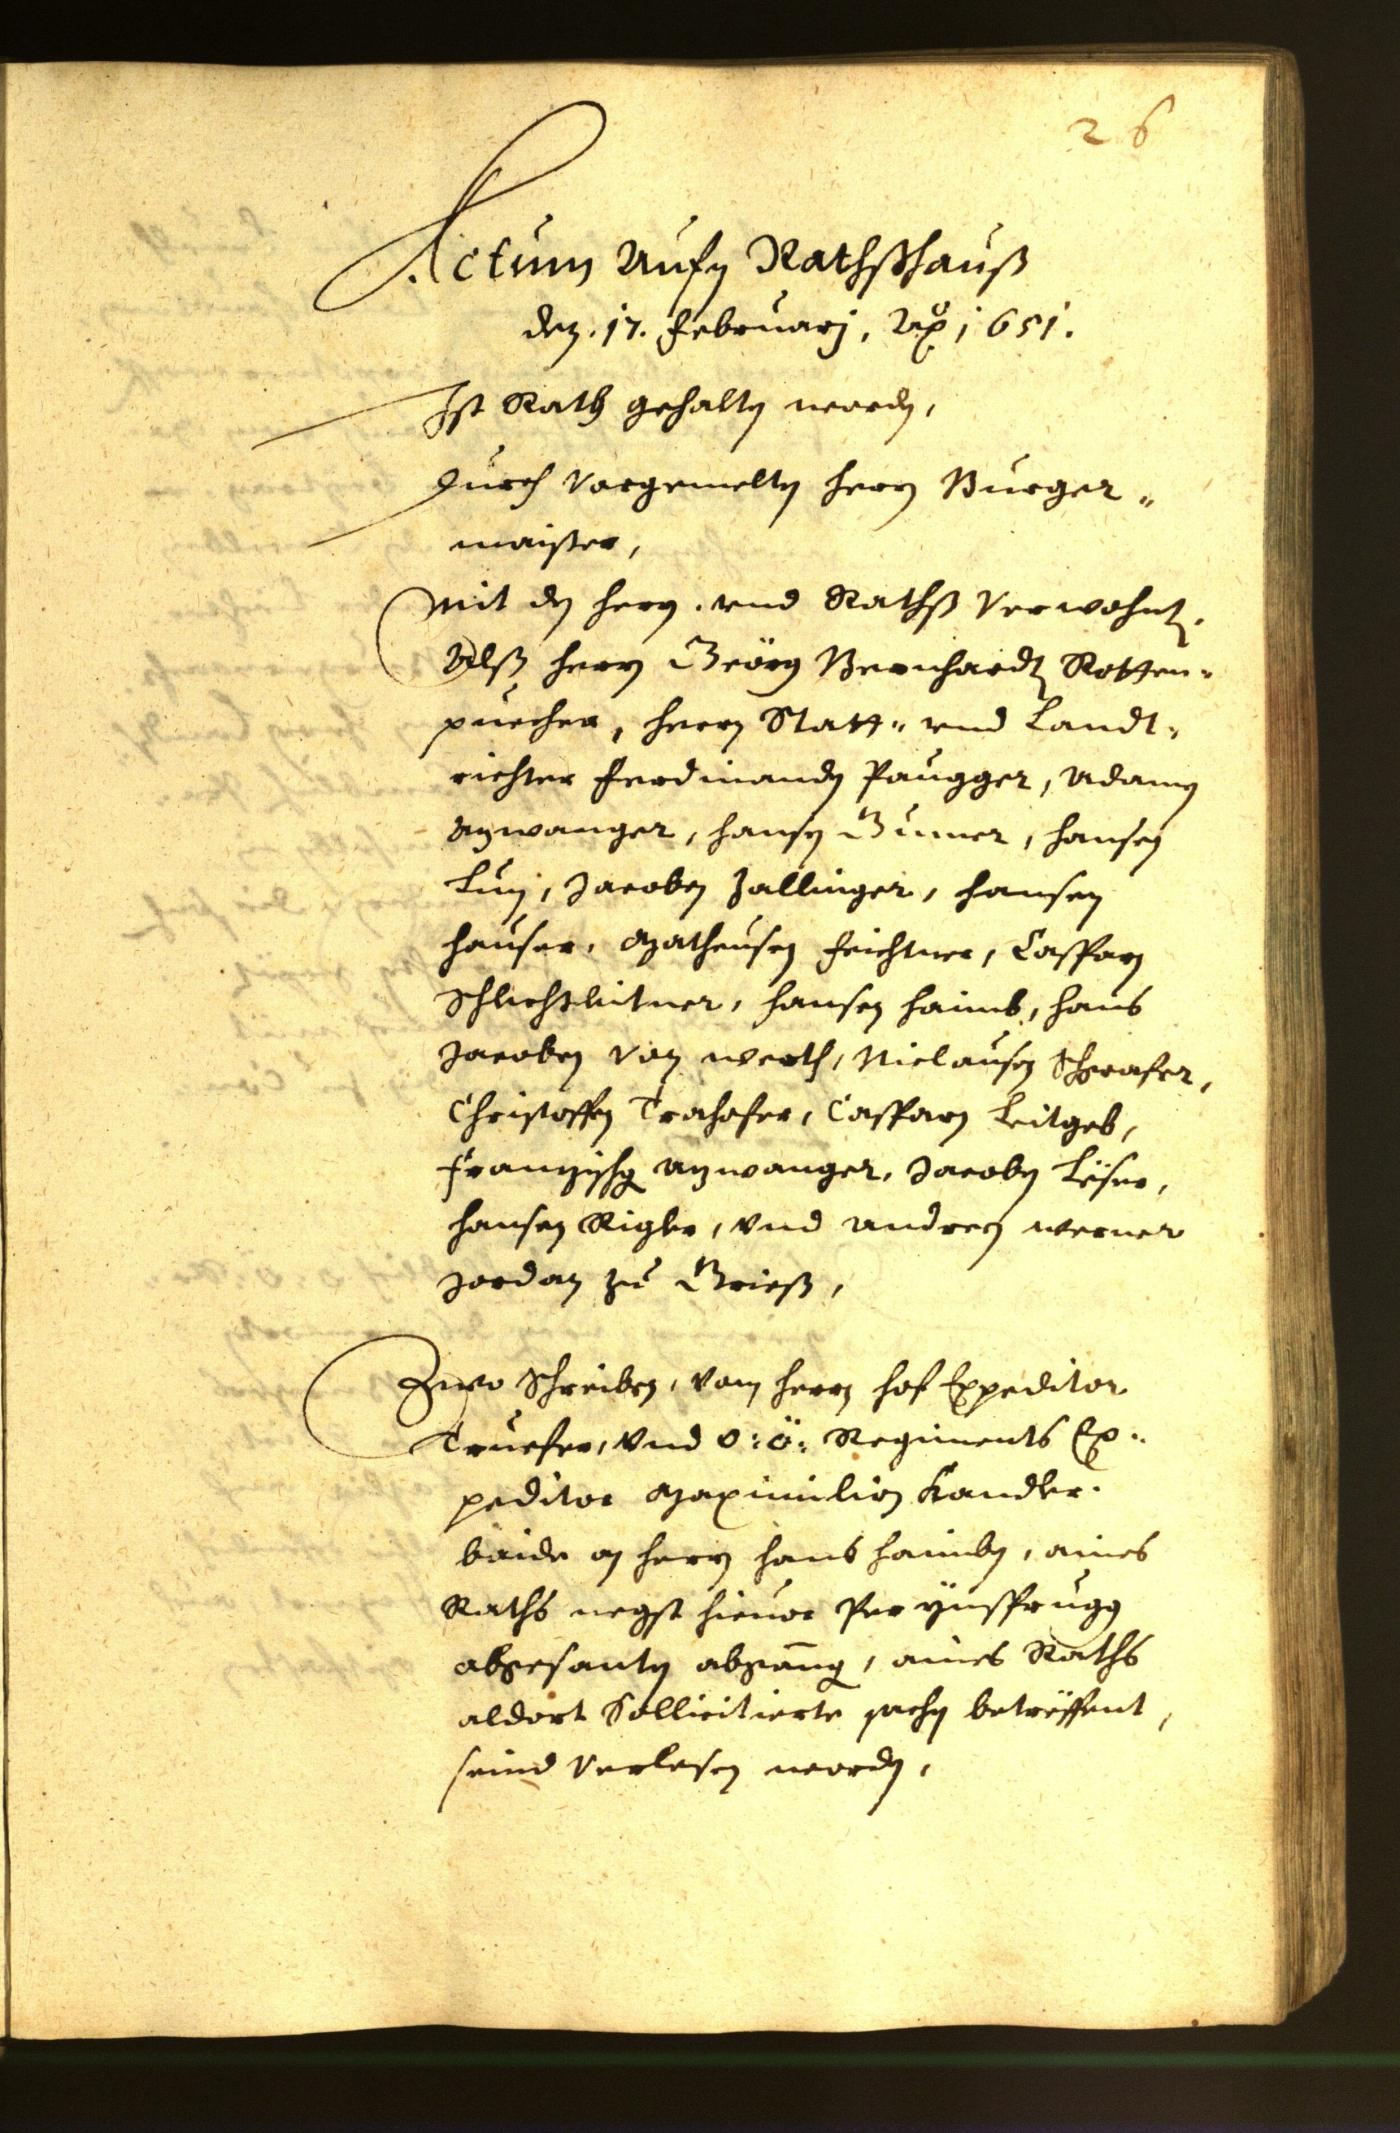 26
Actum Aufn Rathßhauß
den. 17. Februarj, Aõ 1651.
Ist Rath gehaltn wordn,
Durch Vorgemeltn Herrn Burger„
maister,
Mit dn Herrn. und Rathß Verwohnt.
Alß Herrn Geörg Bernhardt Rotten„
puecher, Herrn Statt„ und Landt„
richter Ferdinandn Paugger, Adamn
Anwanger, Hansn Gumer, Hansen
Lun, Jacoben Zallinger, Hansen
Hauser, Matheusen Feichtner, Casparn
Schlechtleitner, Hansen Haimb, Hans
Jacoben von Werth, Niclausen Schrafer,
Christoffen Trahofer, Casparn Leitgeb,
Franzischgn Anwanger, Jacobn Löser,
Hansen Rigler, Vnd Andreen Werner
Jordan zu Grieß,
Zwo Schreiben, vom Herrn Hof Expeditor
Truefer, Vnd O: Ö: Regiments Ex„
peditor Maximilion Kandler.
baide an Herrn Hans Haimbn, aines
Raths negst hieuor Per Ynsprugg
abgesantn abgang, aines Raths
aldort Sollicitierte sachn betreffent,
seind Verlesen wordn,